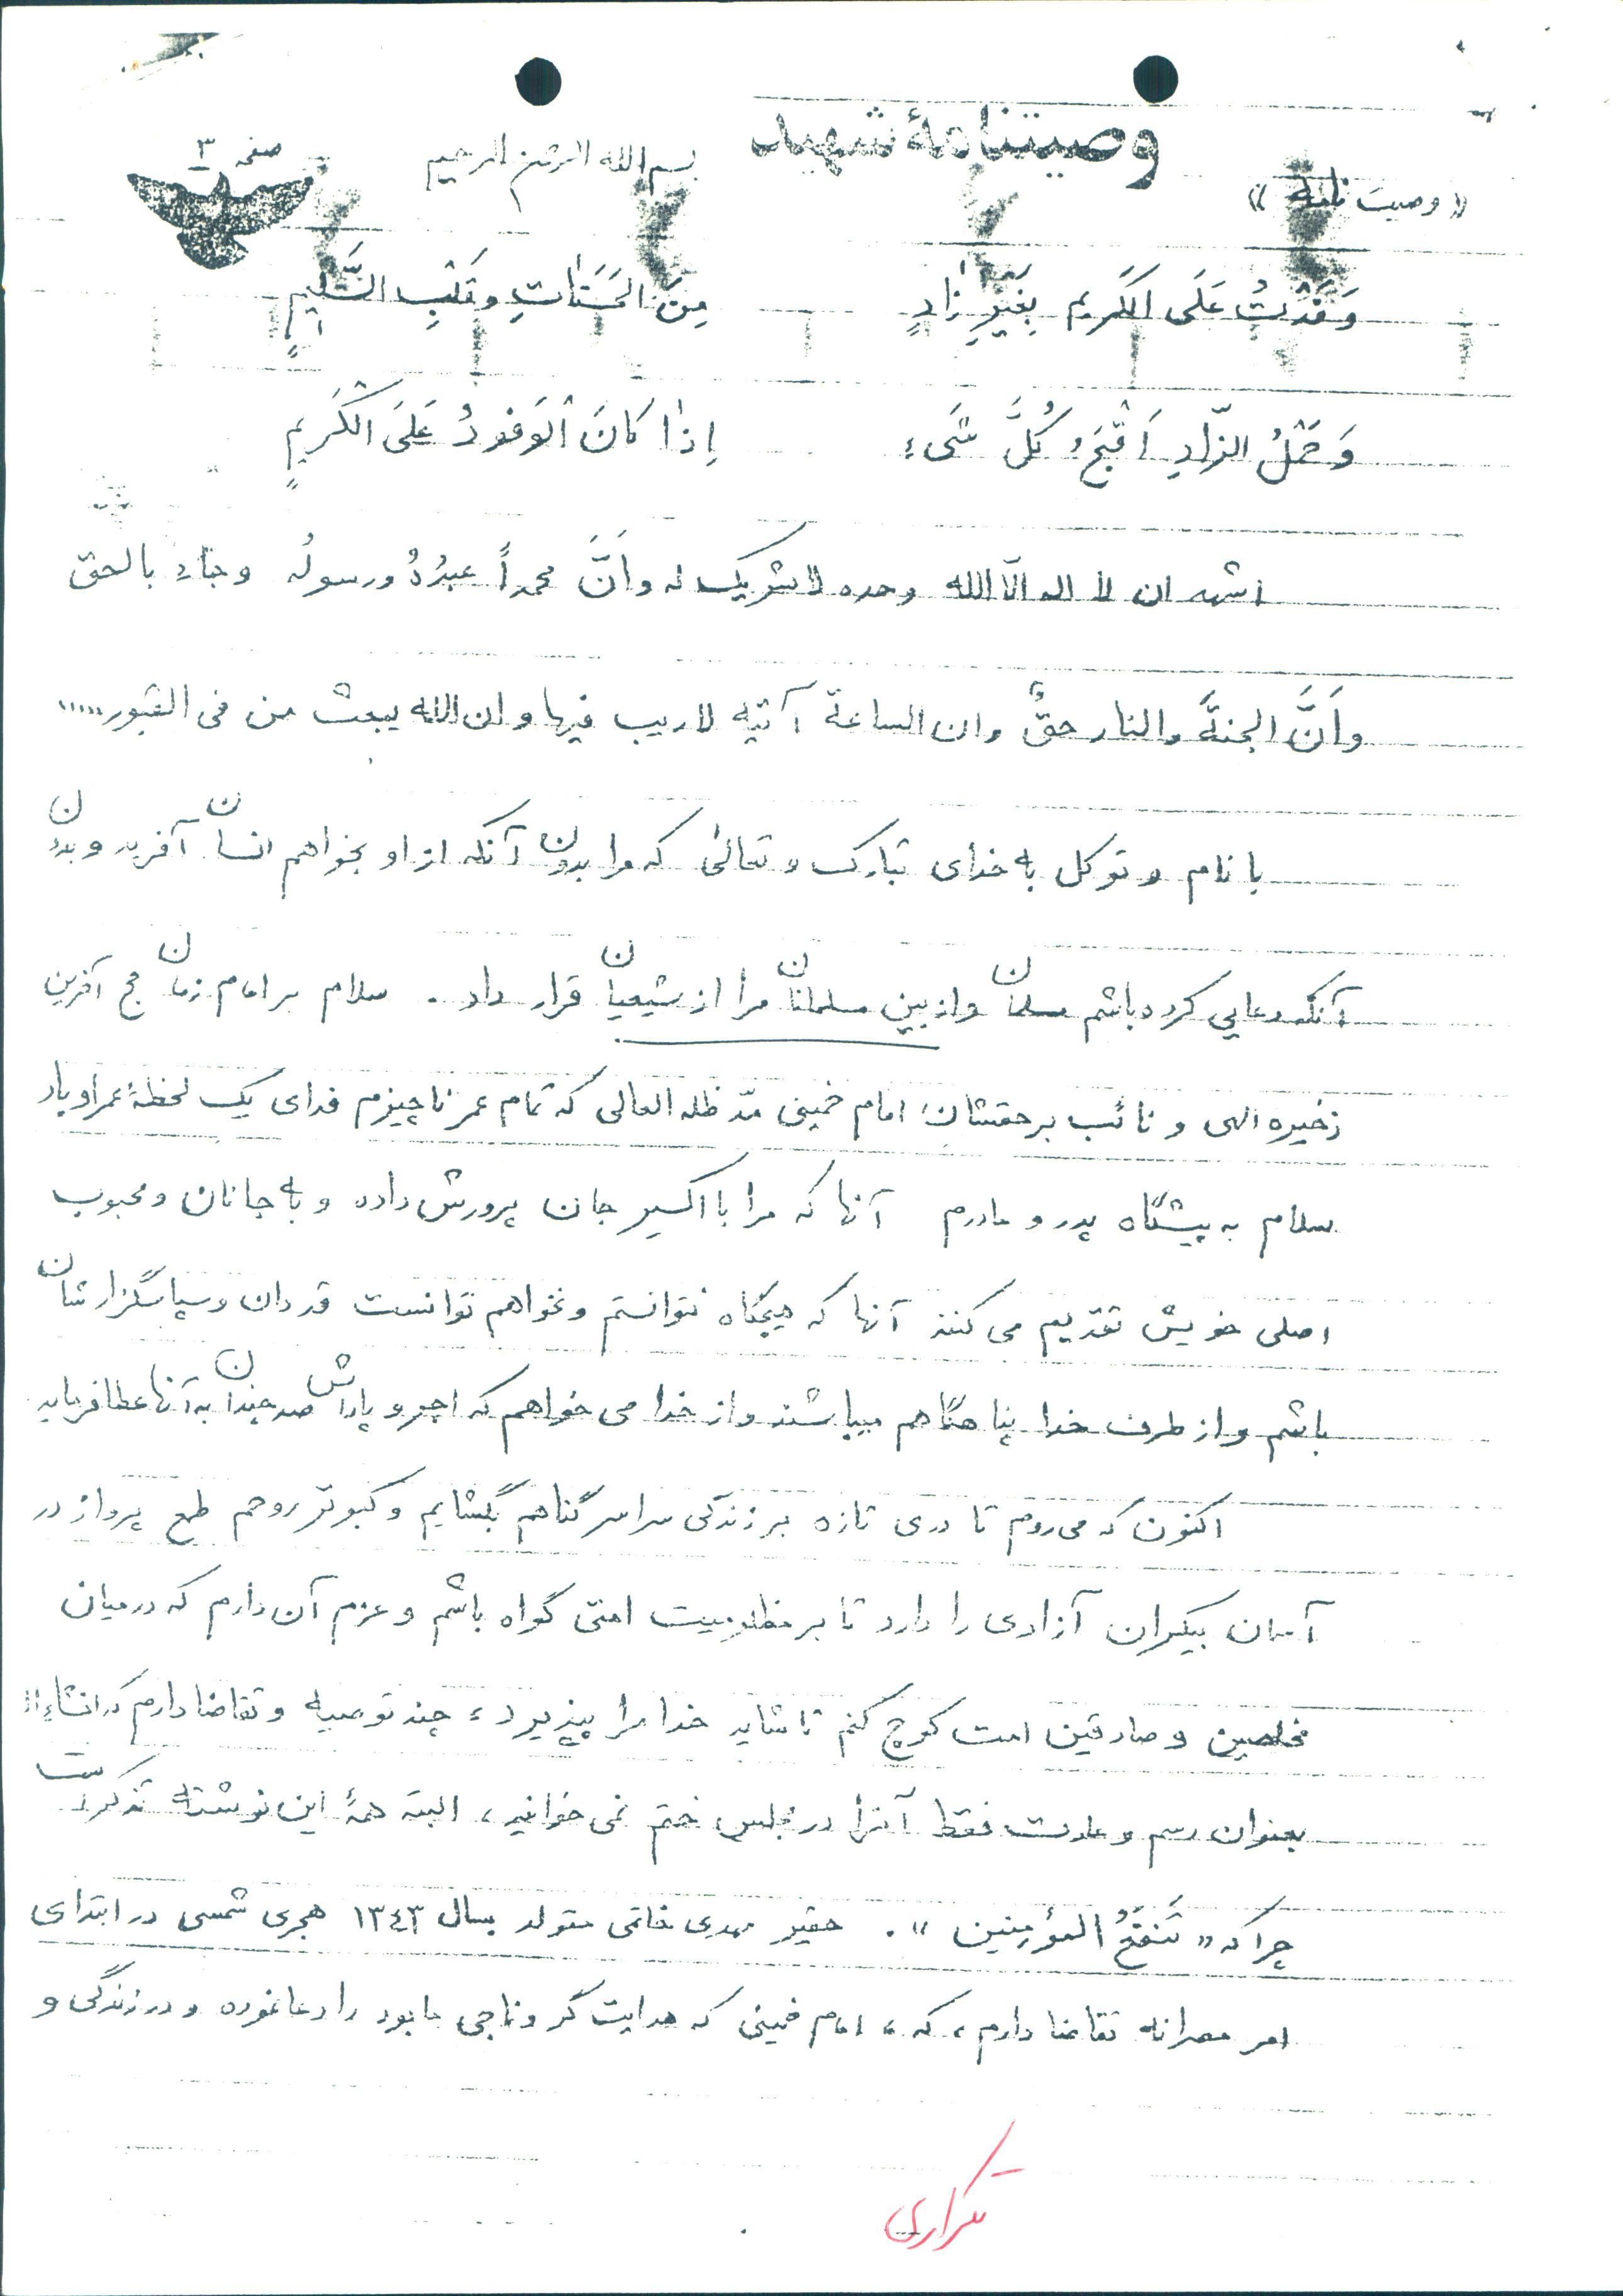 وصیتنامهٔ شهید
صفحه ۳
بسم الله الرحمن الرحیم
« وصیت نامه »
وَفَدْتُ عَلَی الکَریم بِغَیْرِ زادٍ مِنَ الحَسَناتِ و قَلْبِ السَّلیمِ
وَ حَمْلُ الزّادِ اَقْبَحُ کُلَّ شَیءٍ اِذا کانَ الْوَفودُ عَلَی الْکَریمِ
اشهد ان لا اله الّا الله وحده لا شریک له و اَنَّ محمداً عبدُهُ و رسولُه وجاء بالحق
و اَنَّ الجنةَ والنار حقٌ و ان الساعة آتیه لاریب فیها و ان الله یبعث من فی القبور.....
با نام و توکل به خدای تبارک و تعالی که مرا بدون آنکه از او بخواهم انسان آفرید و بدون
آنکه دعایی کرده باشم مسلمان و از بین مسلمانان مرا از شیعیان قرار داد . سلام بر امام زمان عج آخرین
ذخیره الهی و نائب برحقشان امام خمینی مدّ ظله العالی که تمام عمر ناچیزم فدای یک لحظهٔ عمر او باد
سلام به پیشگاه پدر و مادرم آنها که مرا با اکسیر جان پرورش داده و به جانان و محبوب
اصلی خویش تقدیم می کنند آنها که هیچگاه نتوانستم و نخواهم توانست قدردان و سپاسگزارشان
باشم و از طرف خدا پناهگاهم میباشند و از خدا می خواهم که اجر و پاداش صد چندان به آنها عطا فرماید
اکنون که می روم تا دری تازه بر زندگی سراسر گناهم بگشایم و کبوتر روحم طمع پرواز در
آسمان بیکران آزادی را دارد تا بر مظلومیت امتی گواه باشم و عزم آن دارم که در میان
مخلصین و صادقین امت کوچ کنم تا شاید خدا مرا بپذیرد ، چند توصیه و تقاضا دارم که انشاءا..
بعنوان رسم و عادت فقط آنرا در مجلس ختم نمی خوانید ، البته همهٔ این نوشته تذکر است
چرا که « تَنفَعُ المؤمِنین » . حقیر مهدی خاتمی متولد بسال ۱۳٤۳ هجری شمسی در ابتدای
امر مصرانه تقاضا دارم ، که ، امام خمینی که هدایت گر و ناجی ما بود را دعا نموده و در زندگی و
تکراری